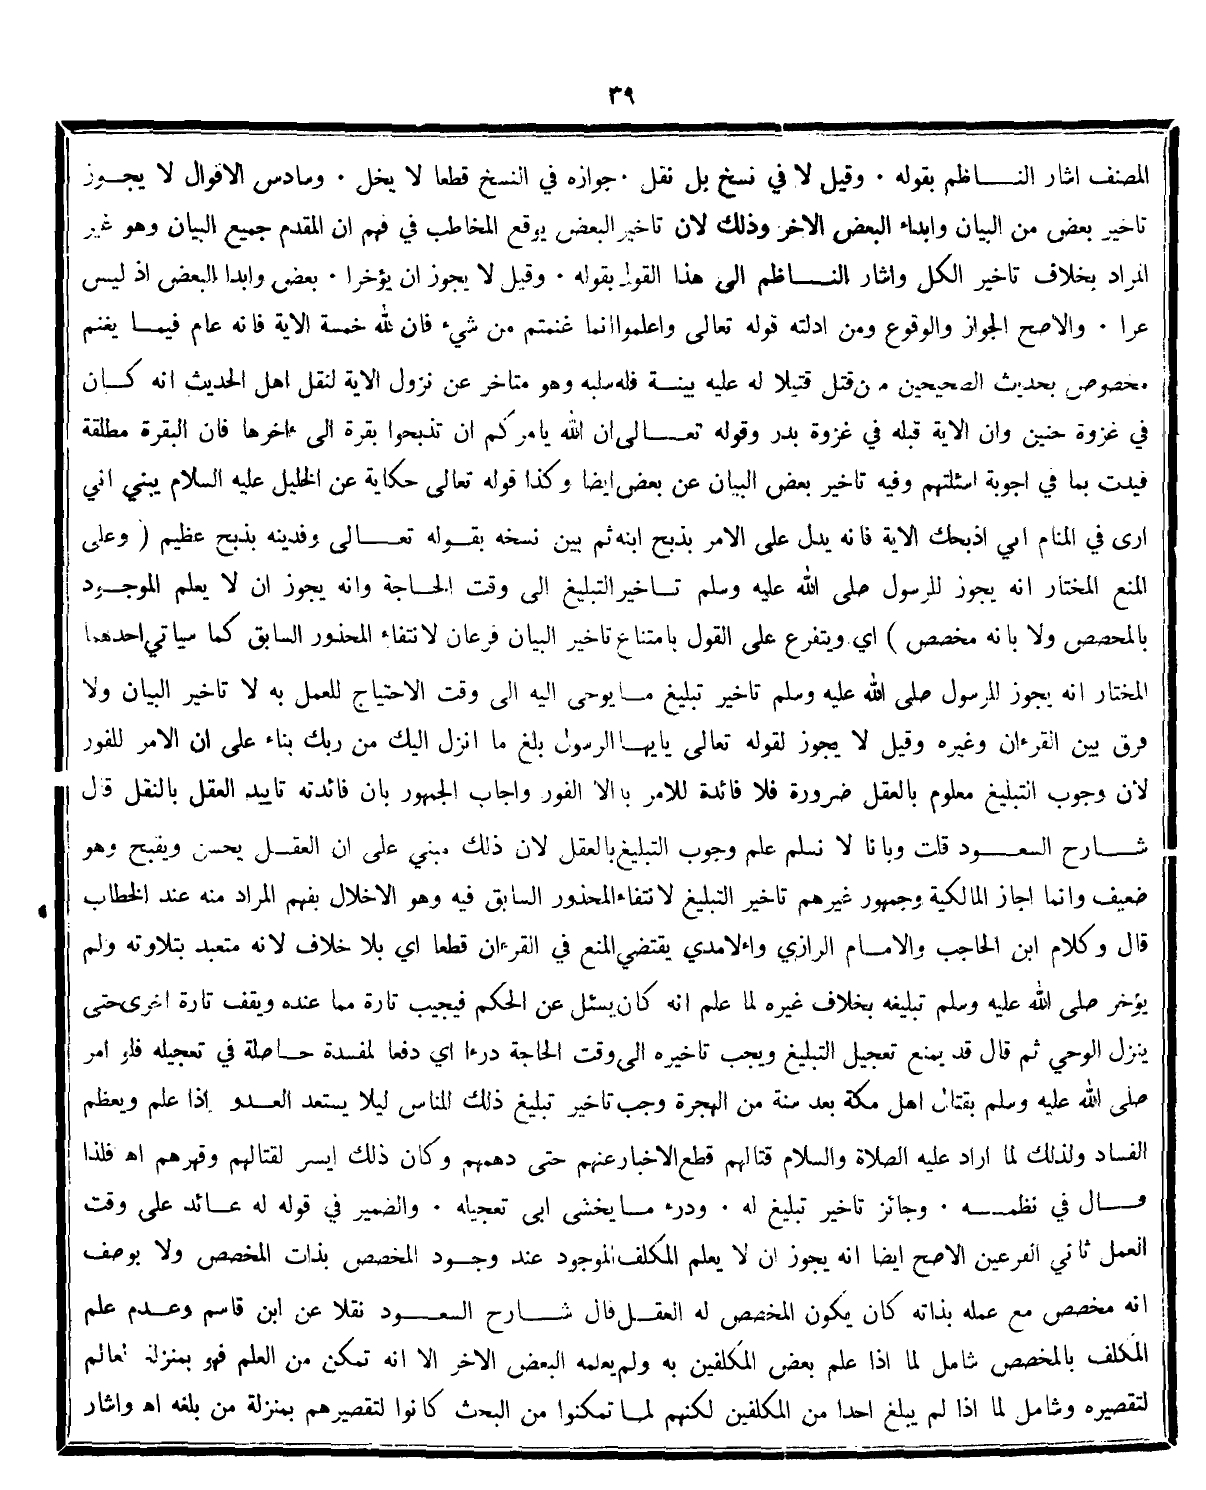 ٣٩
المصنف اشار النـــاظم بقوله ٠ وقيل لا في نسخ بل نقل ٠ جوازه في النسخ قطعا لا يخل ٠ وسادس الاقوال لا يجــوز
تاخير بعض من البيان وابداء البعض الاخر وذلك لان تاخير البعض يوقع المخاطب في فهم ان المقدم جميع البيان وهو غير
المراد بخلاف تاخير الكل واشار النـــاظم الى هذا القول بقوله ٠ وقيل لا يجوز ان يؤخرا ٠ بعض وابدا البعض اذ ليس
عرا ٠ والاصح الجواز والوقوع ومن ادلته قوله تعالى واعلموا انما غنمتم من شيء فان لله خمسة الاية فانه عام فيمــا يغنم
مخصوص بحديث الصحيحين من قتل قتيلا له عليه بينــة فله سلبه وهو متاخر عن نزول الاية لنقل اهل الحديث انه كــان
في غزوة حنين وان الاية قبله في غزوة بدر وقوله تعــالى ان الله يامركم ان تذبحوا بقرة الى ءاخرها فان البقرة مطلقة
فينت بما في اجوبة اسئلتهم وفيه تاخير بعض البيان عن بعض ايضا وكذا قوله تعالى حكاية عن الخليل عليه السلام يبني اني
ارى في المنام اني اذبحك الاية فانه يدل على الامر بذبح ابنه ثم بين نسخه بقــوله تعــالى وفدينه بذبح عظيم ( وعلى
المنع المختار انه يجوز للرسول صلى الله عليه وسلم تــاخير التبليغ الى وقت الحــاجة وانه يجوز ان لا يعلم الموجــود
بالمخصص ولا بانه مخصص ) اي ويتفرع على القول بامتناع تاخير البيان فرعان لانتفاء المحذور السابق كما سياتي احدهما
المختار انه يجوز للرسول صلى الله عليه وسلم تاخير تبليغ مــا يوحى اليه الى وقت الاحتياج للعمل به لا تاخير البيان ولا
فرق بين القرءان وغيره وقيل لا يجوز لقوله تعالى يايهــا الرسول بلغ ما انزل اليك من ربك بناء على ان الامر للفور
لان وجوب التبليغ معلوم بالعقل ضرورة فلا فائدة للامر به الا الفور واجاب الجمهور بان فائدته تاييد العقل بالنقل قال
شـــارح السعـــود قلت وبانا لا نسلم علم وجوب التبليغ بالعقل لان ذلك مبني على ان العقــل يحسن ويقبح وهو
ضعيف وانما اجاز المالكية وجمهور غيرهم تاخير التبليغ لانتفاء المحذور السابق فيه وهو الاخلال بفهم المراد منه عند الخطاب
قال وكلام ابن الحاجب والامــام الرازي والامدي يقتضي المنع في القرءان قطعا اي بلا خلاف لانه متعبد بتلاوته ولم
يؤخر صلى الله عليه وسلم تبليغه بخلاف غيره لما علم انه كان يسئل عن الحكم فيجيب تارة مما عنده ويقف تارة اخرى حتى
ينزل الوحي ثم قال قد يمنع تعجيل التبليغ ويجب تاخيره الى وقت الحاجة درءا اي دفعا لمفسدة حــاصلة في تعجيله فلو امر
صلى الله عليه وسلم بقتال اهل مكة بعد سنة من الهجرة وجب تاخير تبليغ ذلك للناس ليلا يستعد العــدو اذا علم ويعظم
الفساد ولذلك لما اراد عليه الصلاة والسلام قتالهم قطع الاخبار عنهم حتى دهمهم وكان ذلك ايسر لقتالهم وقهرهم اه فلذا
قــال في نظمــه ٠ وجائز تاخير تبليغ له ٠ ودرء مــا يخشى ابى تعجيله ٠ والضمير في قوله له عــائد على وقت
العمل ثاني الفرعين الاصح ايضا انه يجوز ان لا يعلم المكلف الموجود عند وجــود المخصص بذات المخصص ولا بوصف
انه مخصص مع عمله بذاته كان يكون المخصص له العقــل قال شـــارح السعـــود نقلا عن ابن قاسم وعــدم علم
المكلف بالمخصص شامل لما اذا علم بعض المكلفين به ولم يعلمه البعض الاخر الا انه تمكن من العلم فهو بمنزلة العالم
لتقصيره وشامل لما اذا لم يبلغ احدا من المكلفين لكنهم لمــا تمكنوا من البحث كانوا لتقصيرهم بمنزلة من بلغه اه واشار